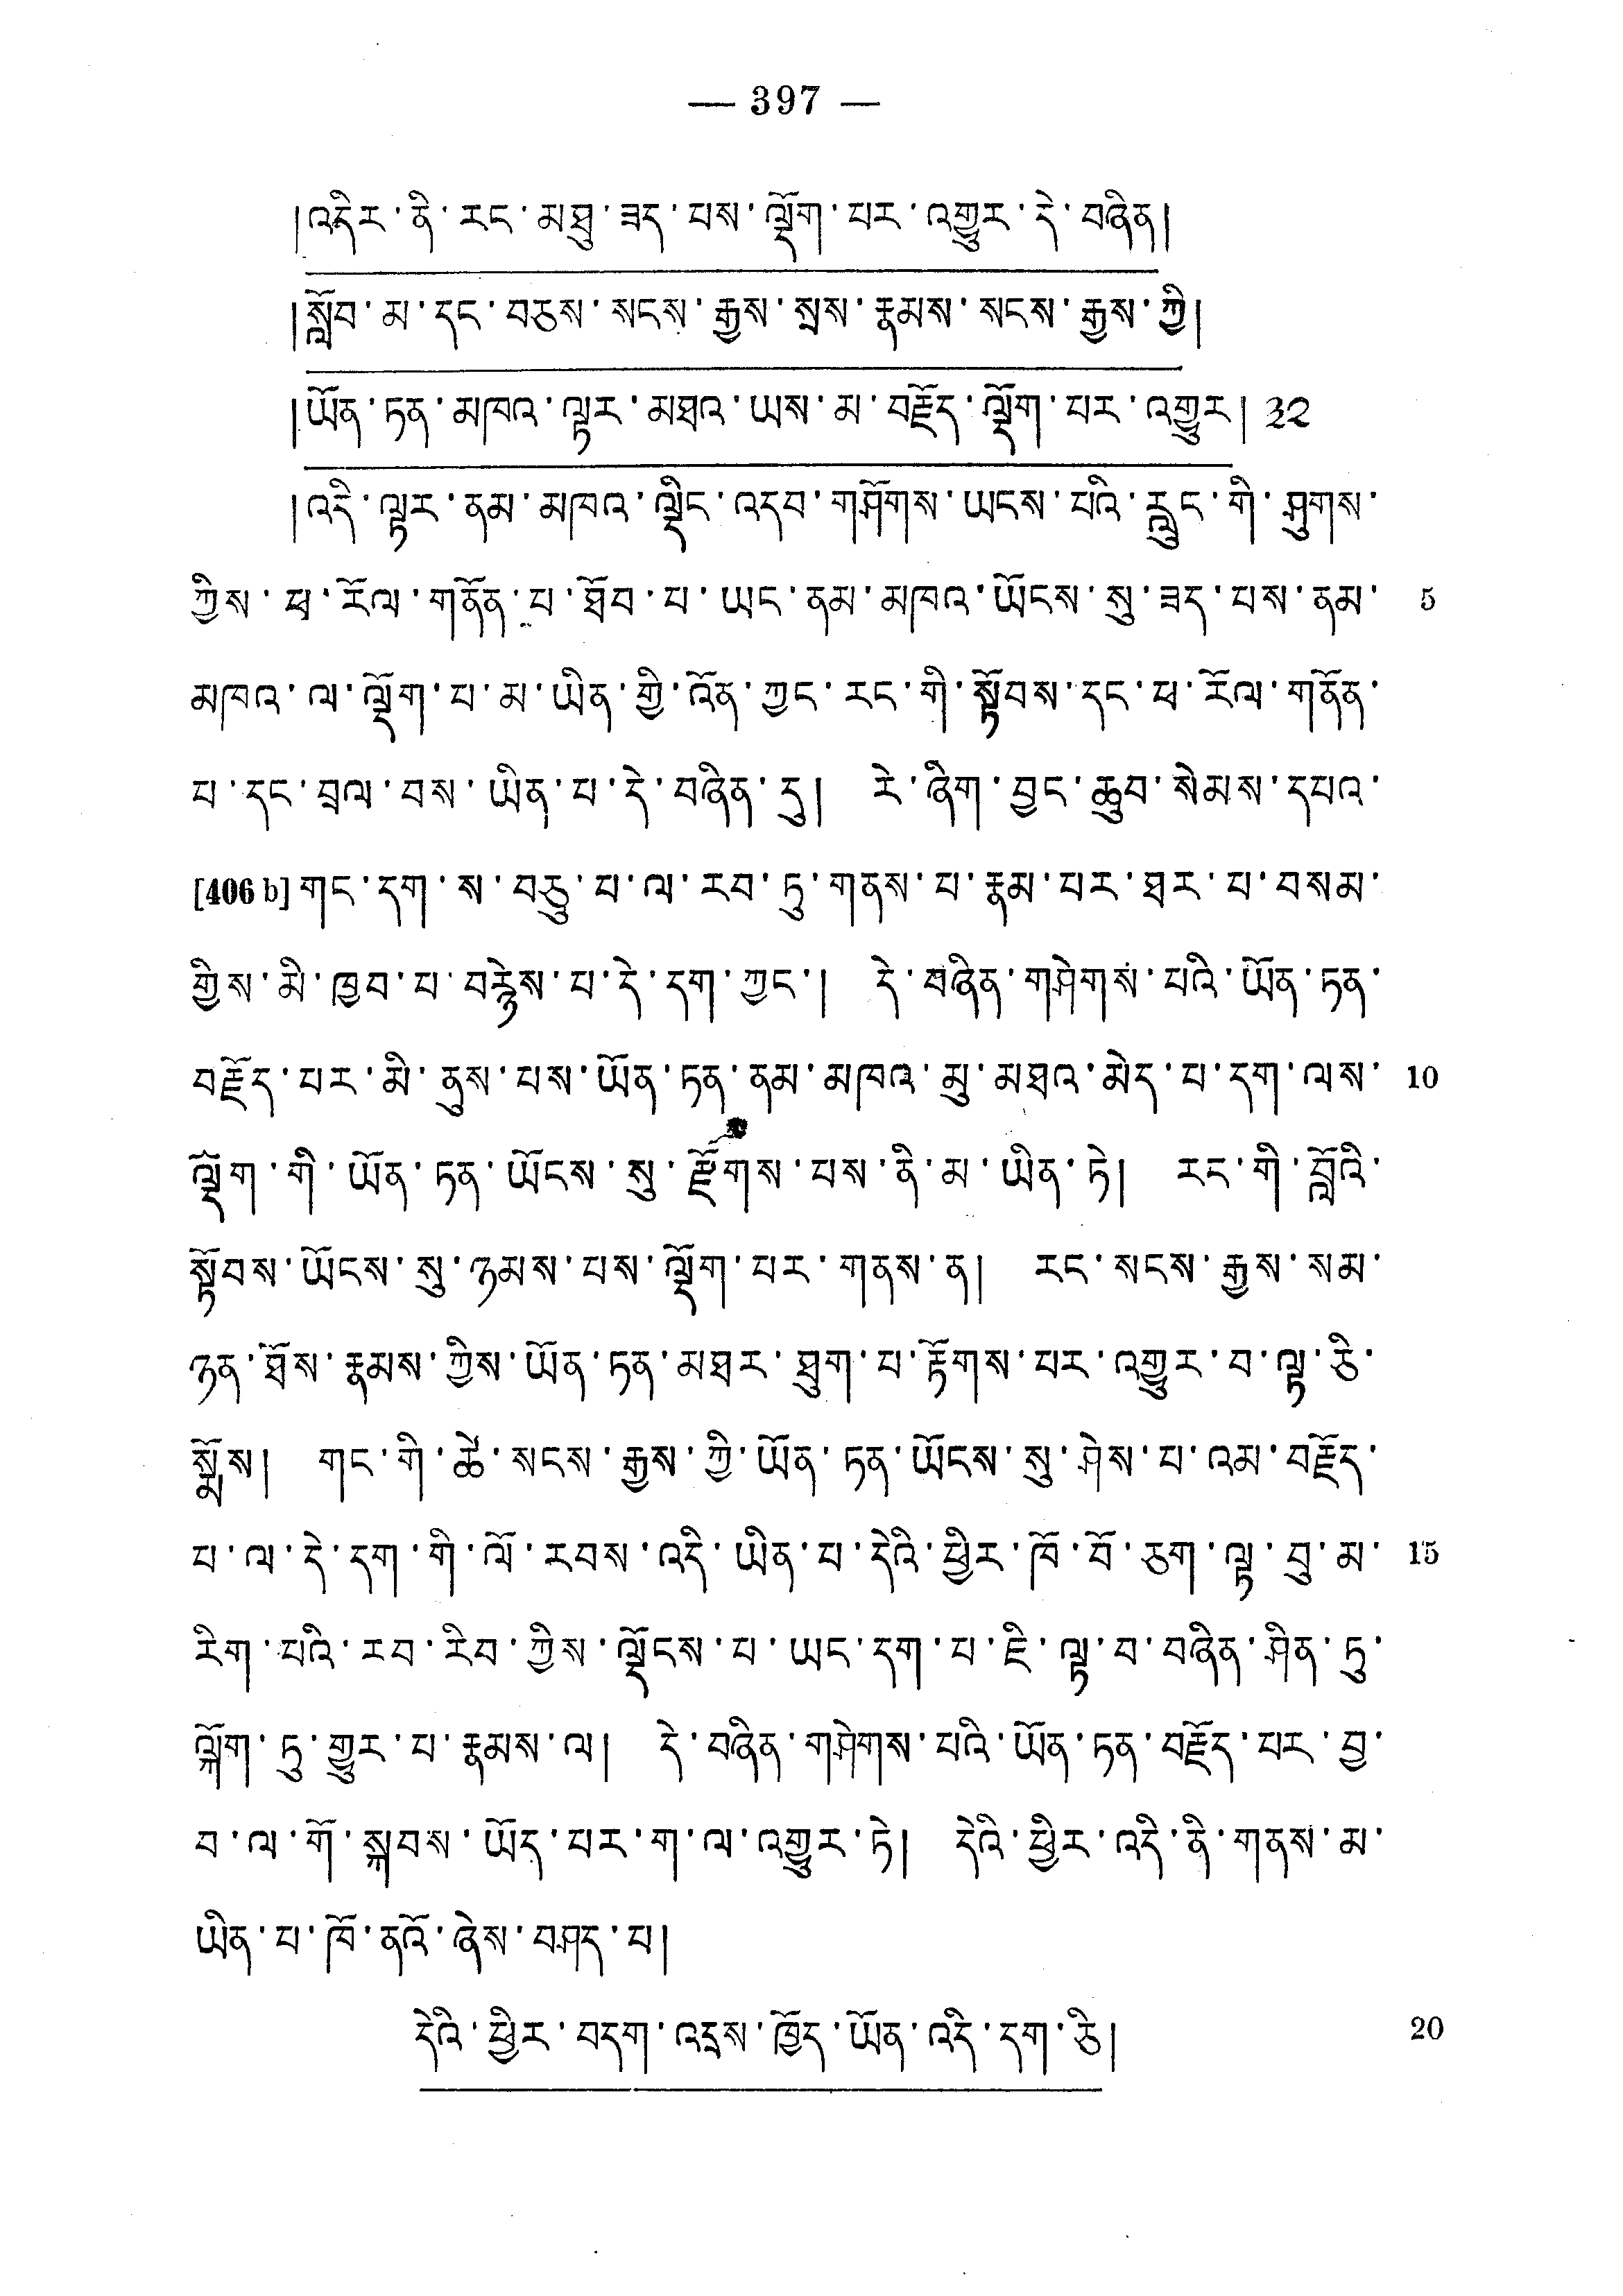 — 397 —
།འདིར་ནི་རང་མཐུ་ཟད་པས་ལྡོག་པར་འགྱུར་དེ་བཞིན།
།སློབ་མ་དང་བཅས་སངས་རྒྱས་སྲས་རྣམས་སངས་རྒྱས་ཀྱི།
།ཡོན་ཏན་མཁའ་ལྟར་མཐའ་ཡས་མ་བརྗོད་ལྡོག་པར་འགྱུར། ༣༢
།འདི་ལྟར་ནམ་མཁའ་ལྡིང་འདབ་གཤོགས་ཡངས་པའི་རླུང་གི་ཤུགས་
ཀྱིས་ཕ་རོལ་གནོན་པ་ཐོབ་པ་ཡང་ནམ་མཁའ་ཡོངས་སུ་ཟད་པས་ནམ་ 5
མཁའ་ལ་ལྡོག་པ་མ་ཡིན་གྱི་འོན་ཀྱང་རང་གི་སྟོབས་དང་ཕ་རོལ་གནོན་
པ་དང་བྲལ་བས་ཡིན་པ་དེ་བཞིན་དུ། རེ་ཞིག་བྱང་ཆུབ་སེམས་དཔའ་
[406 b] གང་དག་ས་བཅུ་པ་ལ་རབ་ཏུ་གནས་པ་རྣམ་པར་ཐར་པ་བསམ་
གྱིས་མི་ཁྱབ་པ་བརྙེས་པ་དེ་དག་ཀྱང་། དེ་བཞིན་གཤེགས་པའི་ཡོན་ཏན་
བརྗོད་པར་མི་ནུས་པས་ཡོན་ཏན་ནམ་མཁའ་མུ་མཐའ་མེད་པ་དག་ལས་ 10
ལྡོག་གི་ཡོན་ཏན་ཡོངས་སུ་རྫོགས་པས་ནི་མ་ཡིན་ཏེ། རང་གི་བློའི་
སྟོབས་ཡོངས་སུ་ཉམས་པས་ལྡོག་པར་གནས་ན། རང་སངས་རྒྱས་སམ་
ཉན་ཐོས་རྣམས་ཀྱིས་ཡོན་ཏན་མཐར་ཐུག་པ་རྟོགས་པར་འགྱུར་བ་ལྟ་ཅི་
སྨོས། གང་གི་ཚེ་སངས་རྒྱས་ཀྱི་ཡོན་ཏན་ཡོངས་སུ་ཤེས་པ་འམ་བརྗོད་
པ་ལ་དེ་དག་གི་ལོ་རབས་འདི་ཡིན་པ་དེའི་ཕྱིར་ཁོ་བོ་ཅག་ལྟ་བུ་མ་ 15
རིག་པའི་རབ་རིབ་ཀྱིས་ལྡོངས་པ་ཡང་དག་པ་ཇི་ལྟ་བ་བཞིན་ཤིན་ཏུ་
ལྐོག་ཏུ་གྱུར་པ་རྣམས་ལ། དེ་བཞིན་གཤེགས་པའི་ཡོན་ཏན་བརྗོད་པར་བྱ་
བ་ལ་གོ་སྐབས་ཡོད་པར་ག་ལ་འགྱུར་ཏེ། དེའི་ཕྱིར་འདི་ནི་གནས་མ་
ཡིན་པ་ཁོ་ནའོ་ཞེས་བཤད་པ།
དེའི་ཕྱིར་བདག་འདྲས་ཁྱོད་ཡོན་འདི་དག་ཅི། 20